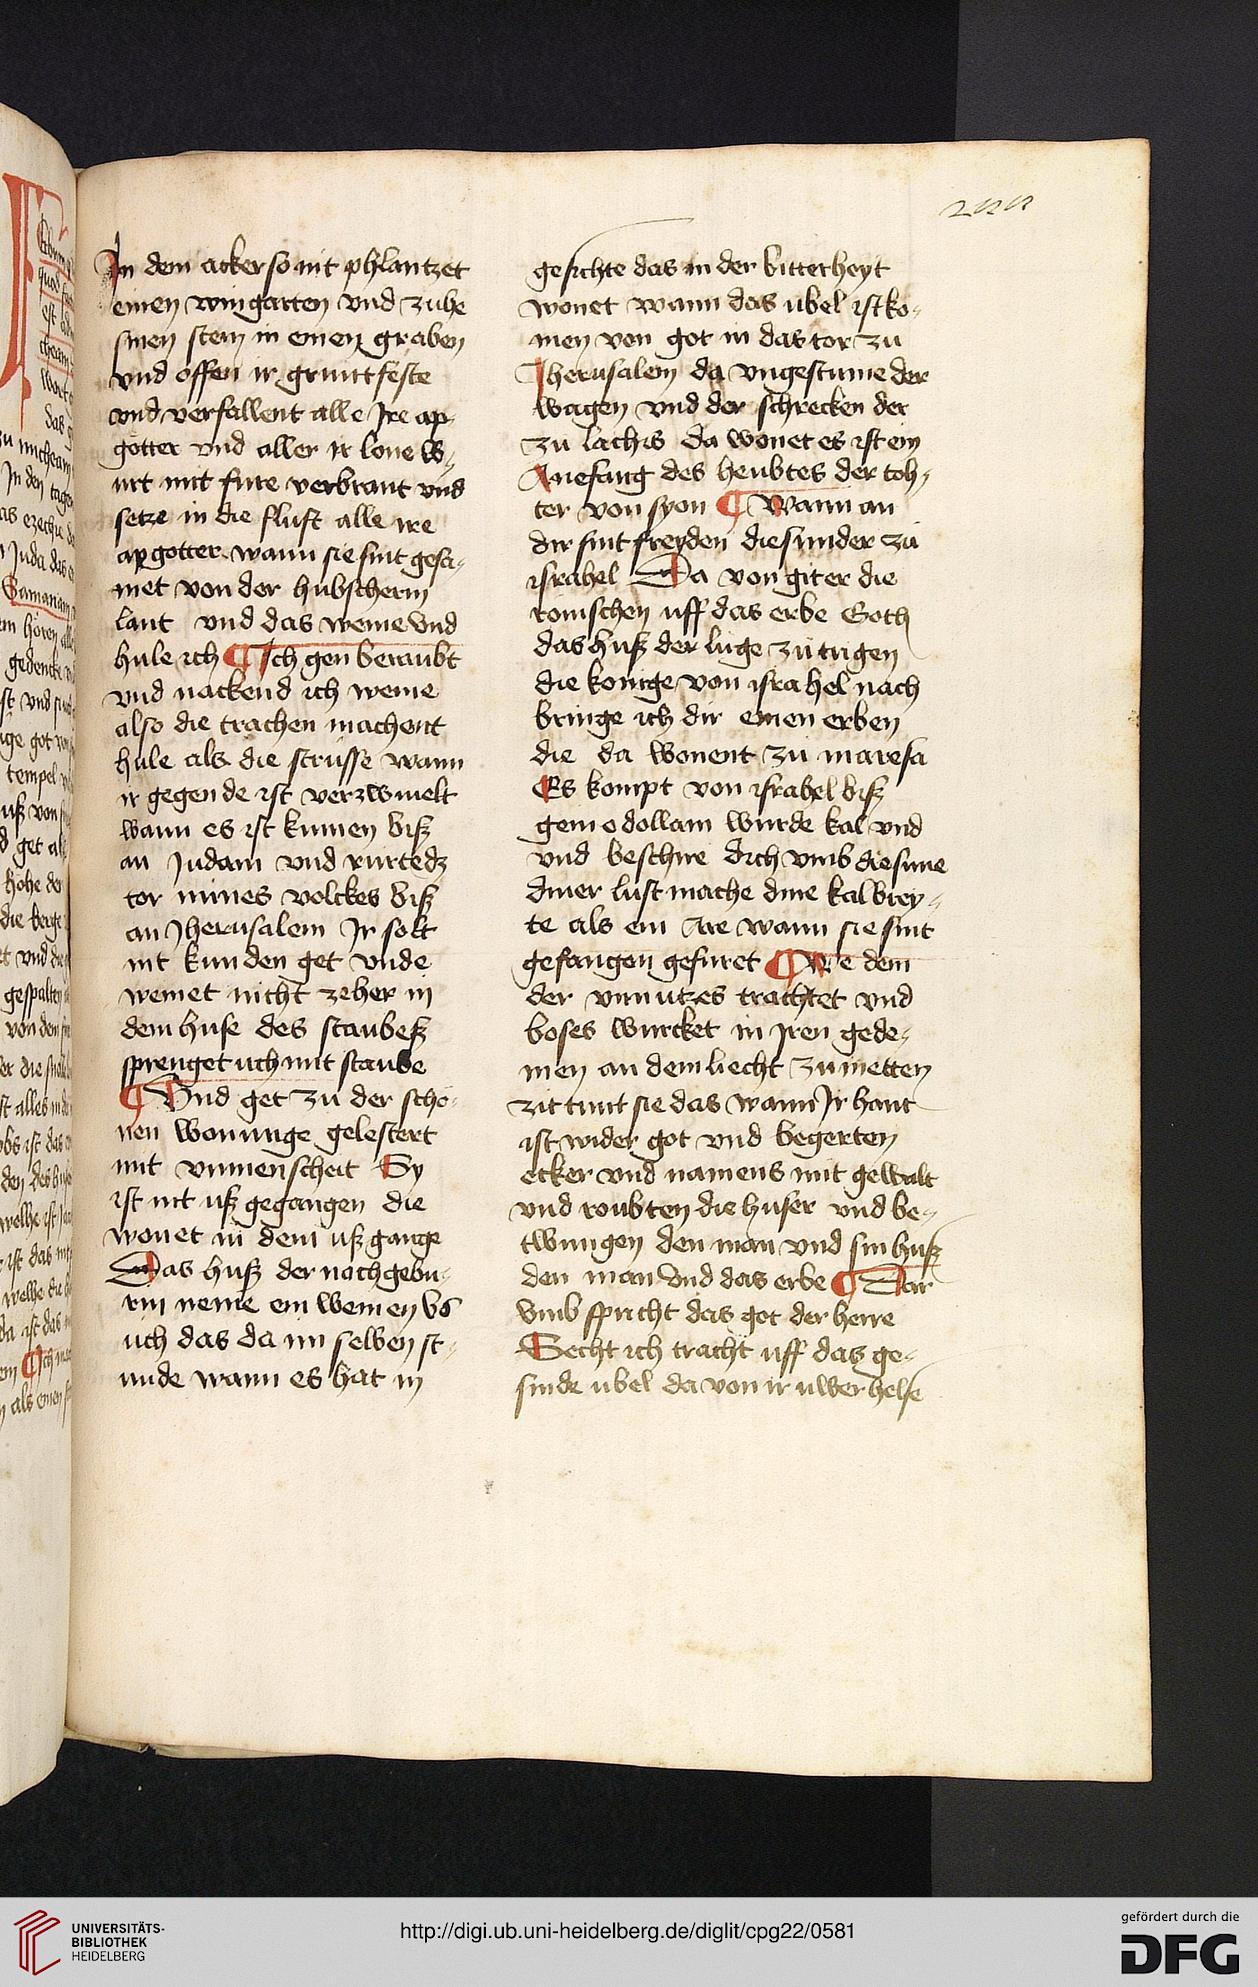 In dem acker so mit phlantzet
einen wingarten vnd zuhe
sinen stein in einen graben
vnd offen ir gruntfeste
vnd verfallent alle Ire ap-
gotter vnd aller ir lone w-
irt mit fure verbrant vnd
setze in die flust alle ire
apgotter wann sie sint gesa-
met von der hubscherin
lant vnd das weine vnd
hule ich ¶ Ich gen beraubt
vnd nackend ich weine
also die trachen machent
hule als die strusse wann
ir gegende ist verzwiuelt
wann es ist kumen biß
an Judam vnd rurte dz
tor mines volckes biß
an Jherusalem Ir solt
nit kunden get vnde
weinet nicht zeher in
dem huse des staubeß
sprenget uch mit staube
¶ Vnd get zu der scho-
nen wonunge gelestert
mit vnmenscheit Sy
ist nit uß gegangen die
wonet in dem ußgange
Das huß der nochgebu-
rin neme ein weinen vs
uch das da im selben st-
unde wann es hat in
gesichte das in der bitterheyt
wonet wann das ubel ist ko-
men von got in das tor zu
Jherusalem da vngestume der
wagen vnd der schrecken der
zu lachis da wonet es ist ein
Anefang des heubtes der toh-
ter von syon ¶ Wann an
dir sint freyden die sunder zu
israhel Da von git er die
romschen uff das erbe Goth
das huß der luge zu trigen
die konige von israhel nach
bringe ich dir einen erben
die da wonent zu maresa
Es kompt von israhel biß
gein odollam wurde kal vnd
vnd beschire dich vmb die sune
diner lust mache dine kal brey-
te als ein are wann sie sint
gefangen gefuret ¶ We dem
der vnnutzes trachtet vnd
boses wurcket in Iren gede-
men an dem liecht zu metten
zit tunt sie das wann Ir hant
ist wider got vnd begerten
ecker vnd namens mit gewalt
vnd roubten die huser vnd be-
twungen den man vnd sin huß
den man vnd das erbe ¶ Dar
vmb spricht das got der herre
Secht ich tracht uff das ge-
sinde ubel da von ir uwer helse
UNIVERSITÄTS-
BIBLIOTHEK
HEIDELBERG
http://digi.ub.uni-heidelberg.de/diglit/cpg22/0581
gefördert durch die
DFG